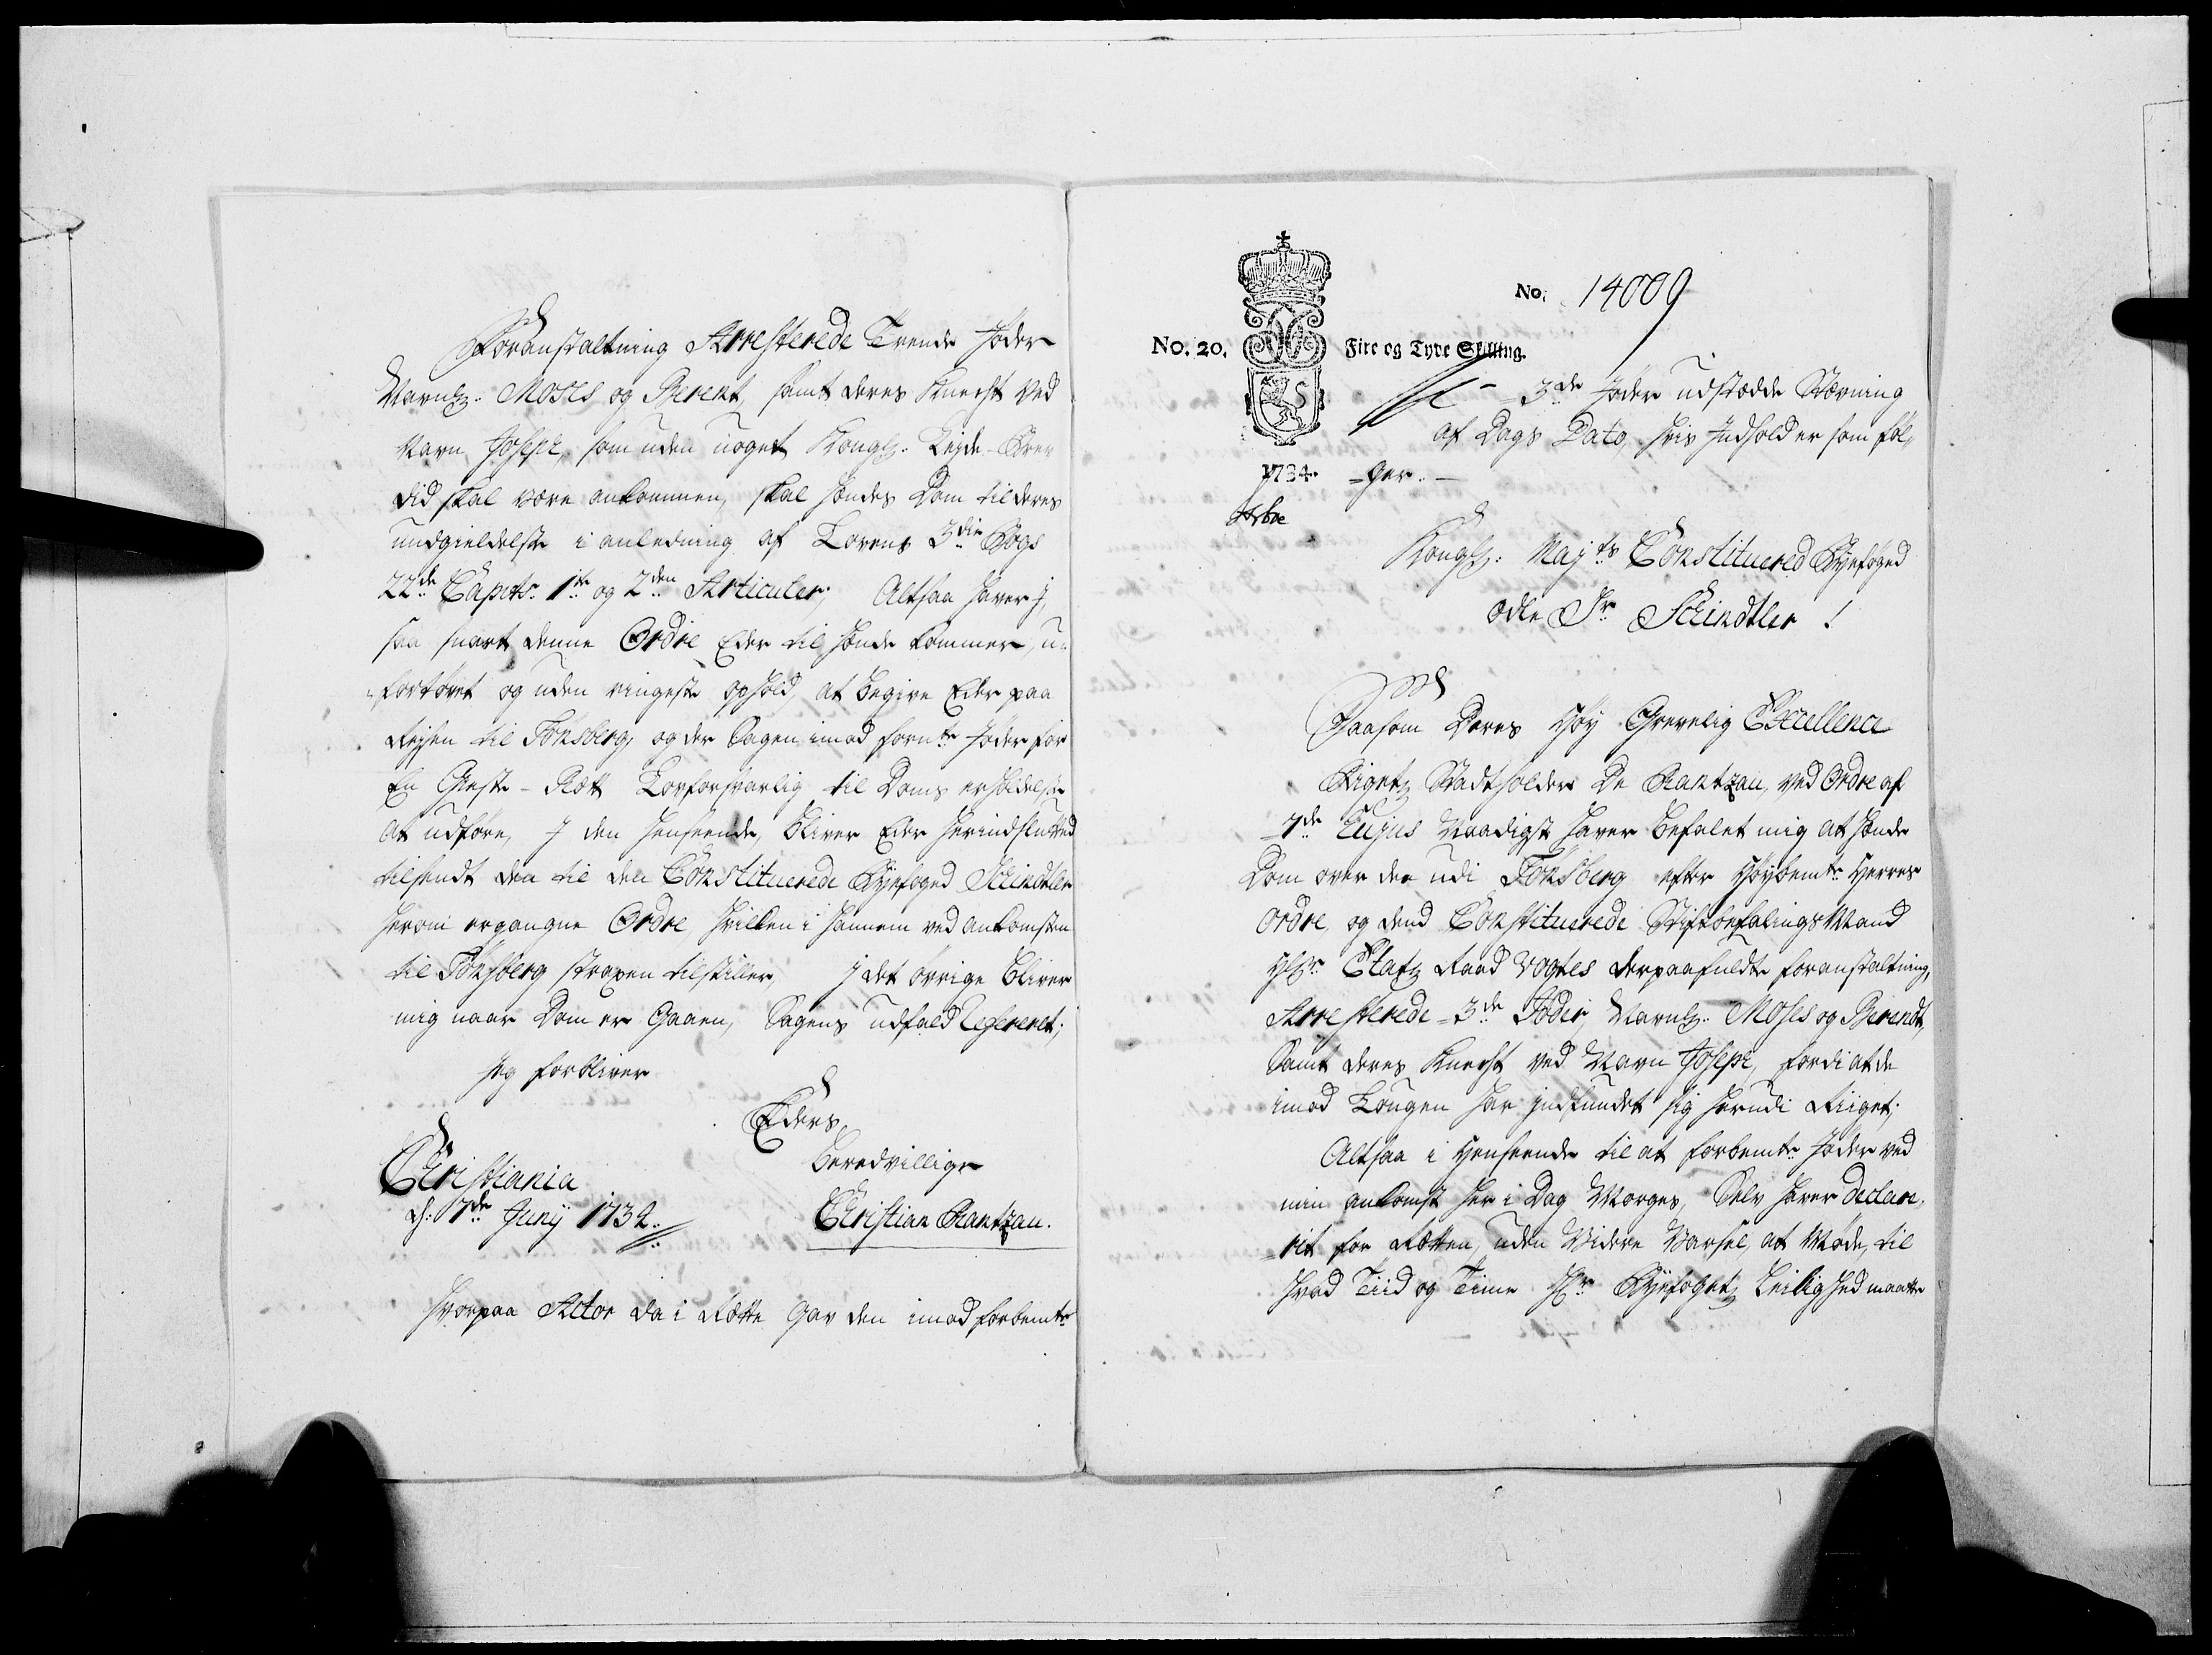 Foranstaltning Arresterede Trende Jøder
Navnlg: Moses og Berent, samt deres Knecht ved
Navn Joseph, som uden noget Kongl: Lejde-Brev
did skal være ankommen, skal hendes Dom til deres
undgieldelse i anledning af Lovens 3die Bogs
22de Capits: 1te og 2den Articuler; Altsaa haver I,
saa snart denne Ordre Eder til hænde kommer, u-
-fortøvet og uden ringeste ophold, at begive Eder paa
Rejsen til Tønsberg, og der Sagen imod fornte Jøder for
En Gieste-Rett Lovforsvarlig til Doms erholdelse
at udføre, I den henseende, bliver Eder herindslutted
tilsendt den til den Constituerede Byefoged Schindtler
herom ergangne Ordre, hvilken i hannem ved ankomsten
til Tønsberg straxen tilstiller, I det øvrige bliver
mig naar Dom er Gaaen, Sagens udfald Refereret;
Jeg forbliver
Eders
Beredvillige
Christiania
d: 7de Junÿ 1734.
Christian Rantzau.
Hvorpaa Actor da i Rette gav den imod forbemte
No: 14009
No. 20.
Fire og Tyve Skilling.
3de Jøder udstædde Stævning
af Dags Dato, hvis Indhold er som føl,
1734.
-ger.
Kongl: Mayts Constituered Byefoged
ædle Sr Schindtler!
Saasom Deres Høy Grevelig Excellence
Rigetz Stadtholder De Rantzau, ved Ordre af
7de Hujus Naadigst haver befalet mig at hende
Dom over dee udi Tønsberg efter Høybemte Herres
Ordre, og dend Constituerede StiftbefalingsMand
Hr: Etatz Raad Vogtes derpaafuldte foranstaltning,
Arresterede 3de Jøder, Navnlg: Moses og Berendt,
Samt deres Knecht ved Navn Joseph, fordi at de
imod Lougen har indfundet sig herudi Riiget;
Altsaa i Henseende til at forbemte Jøder ved
min ankomst her i Dag Morges, Selv haver declare,
-rit for Retten, uden Videre Varsel, at Møde, til
hvad Tiid og Time Hr Byefogetz Leilighed maatte